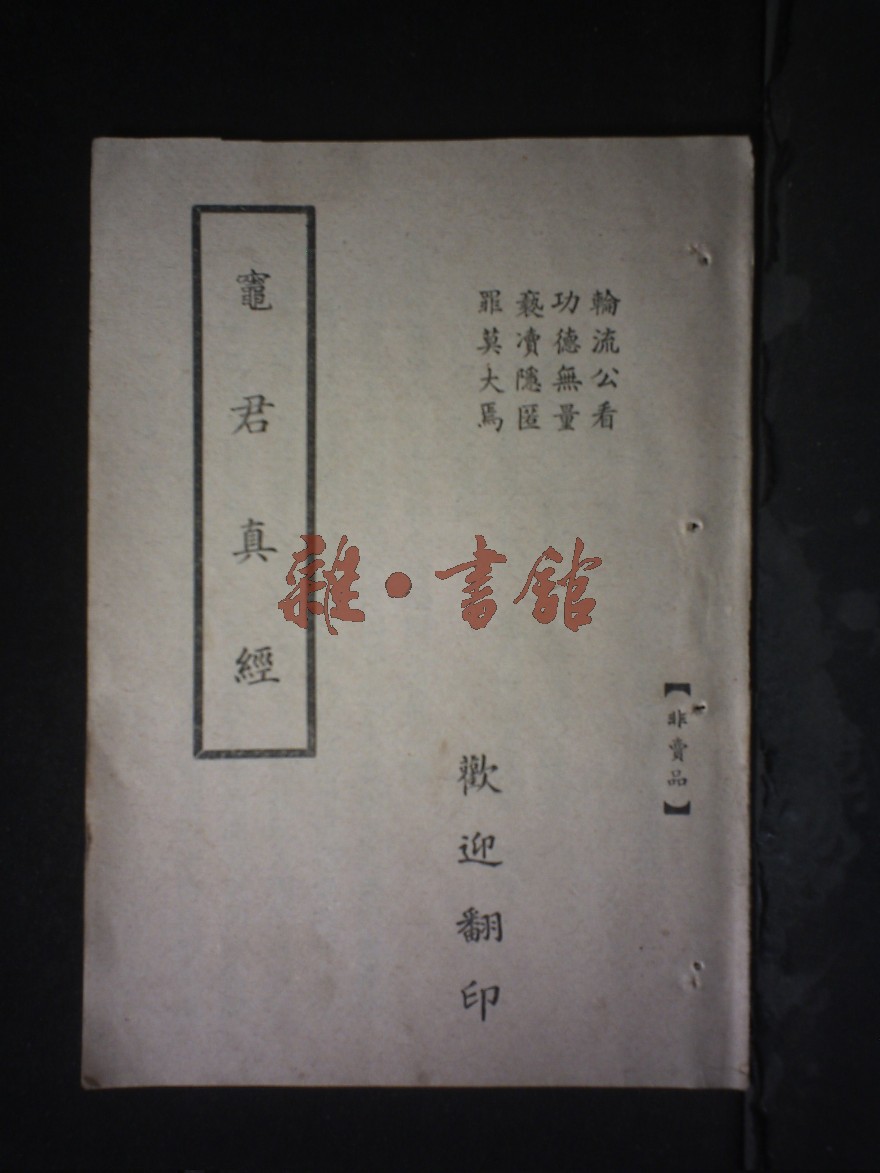 【非賣品】
輪流公看
功德無量
褻凟隱匿
罪莫大焉
歡迎翻印
竈君真經
雜·書館